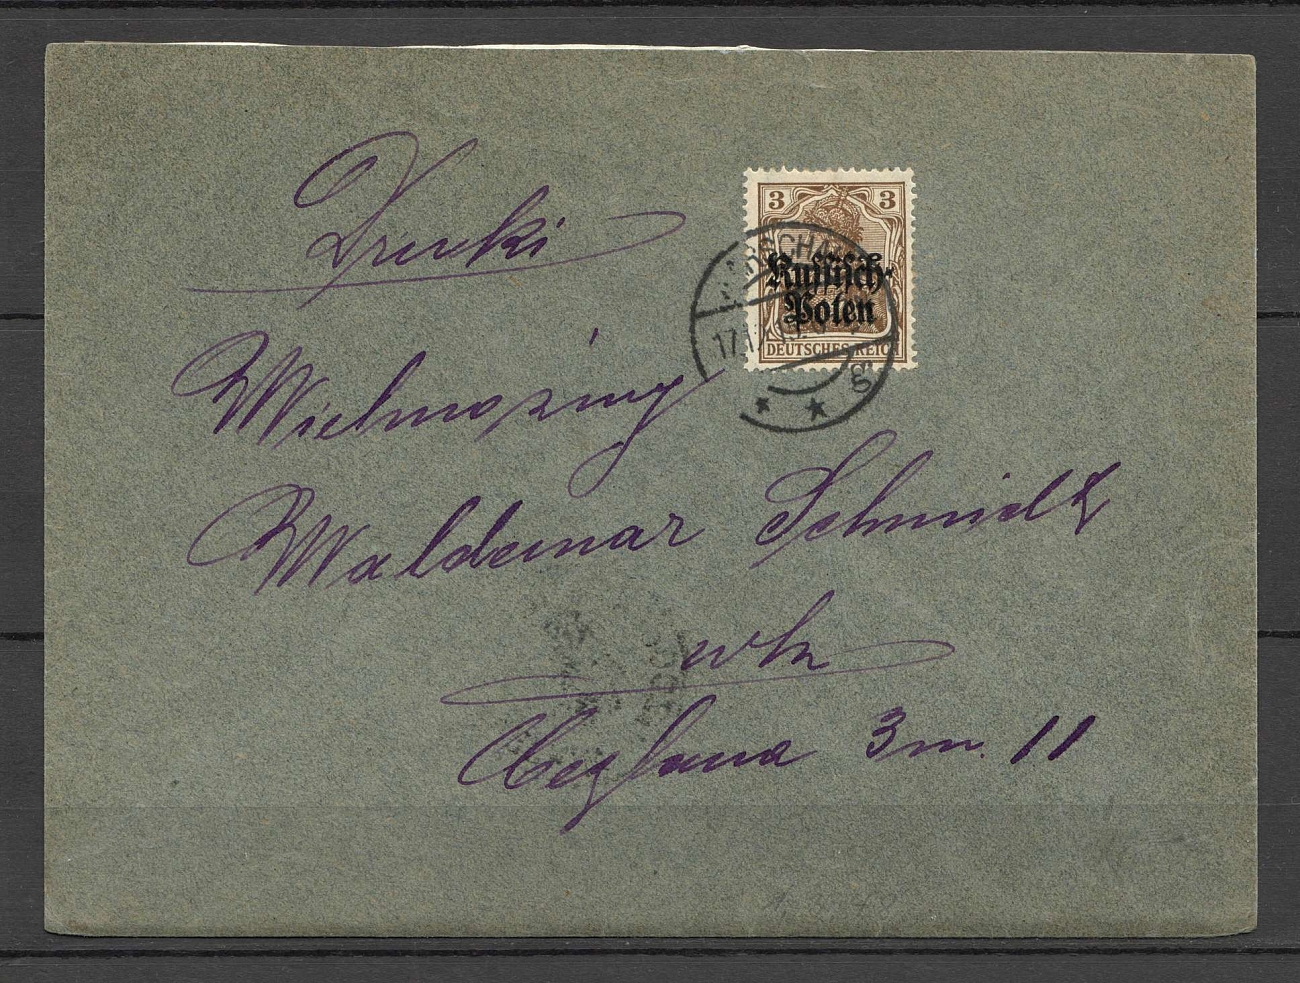 Druki
3 3
WARSCHAU
Russisch-
Polen
17.
DEUTSCHES REICH
Wielmożny
Waldemar Schmidt
w/m
Ceglana 3 m. 11